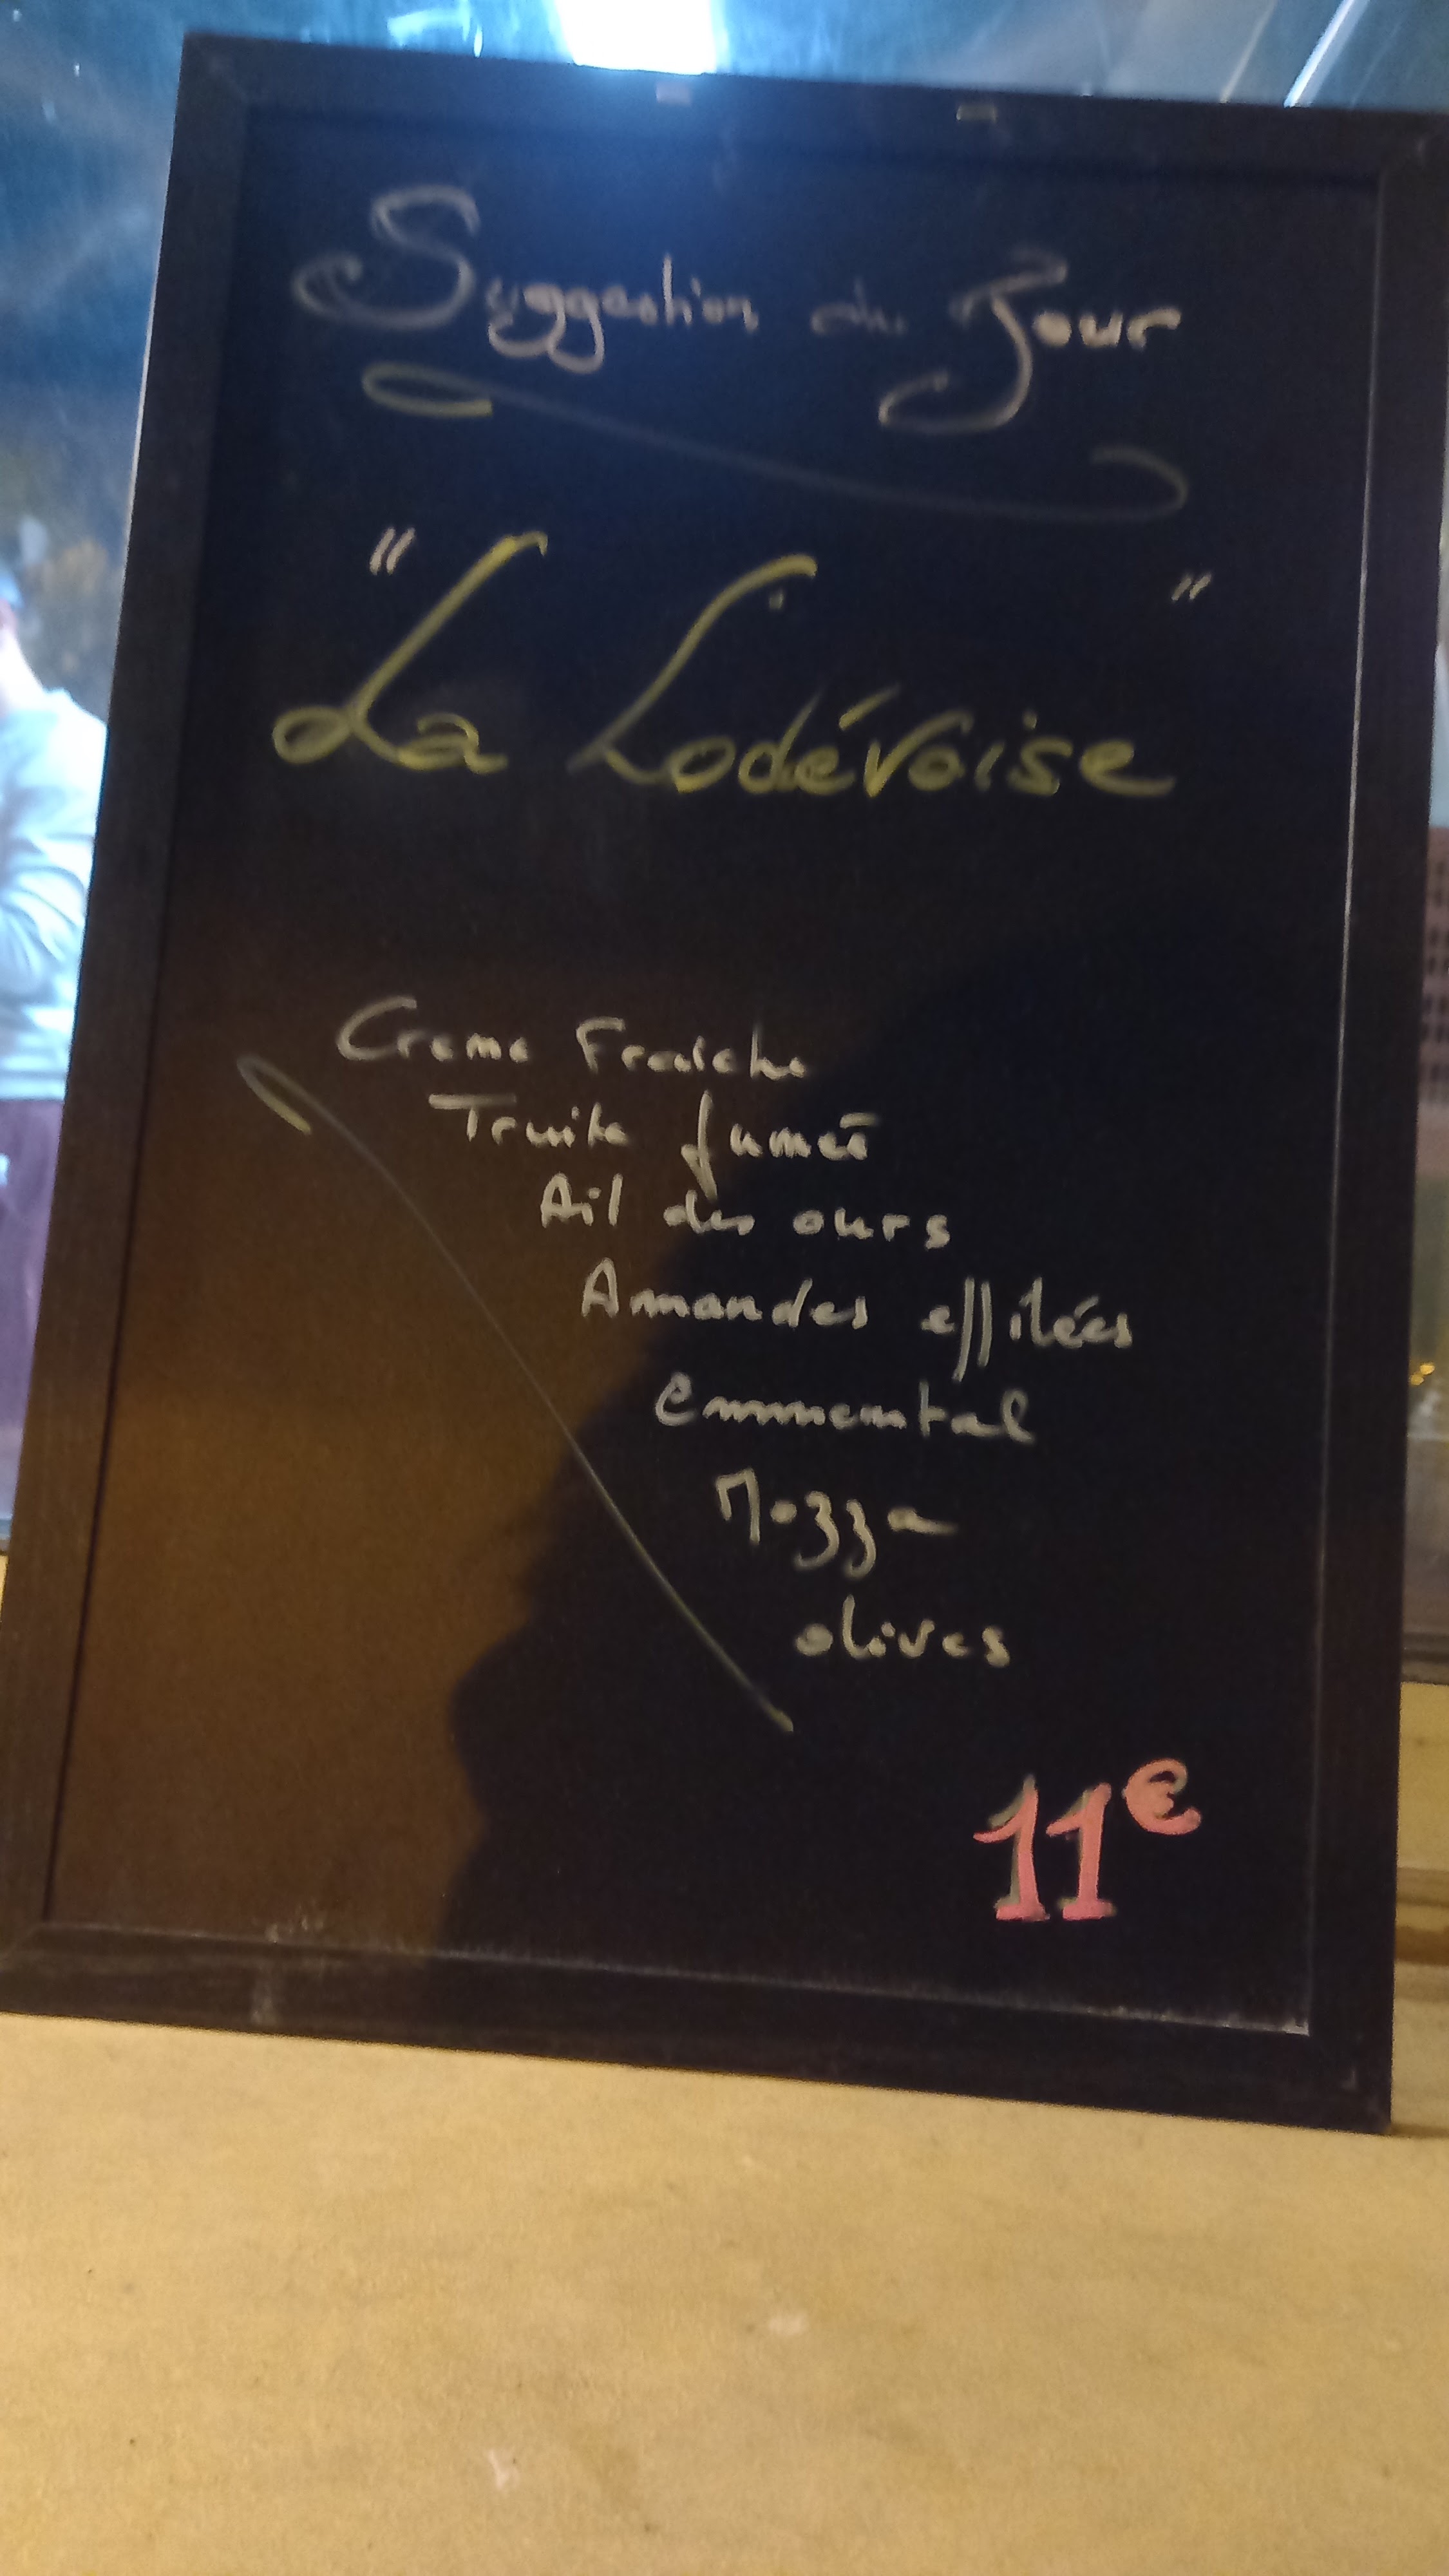 Suggestion du Jour
" La Lodévoise "
Creme Fraiche
Truite fumée
Ail des ours
Amandes effilées
Emmental
Mozza
olives
11€